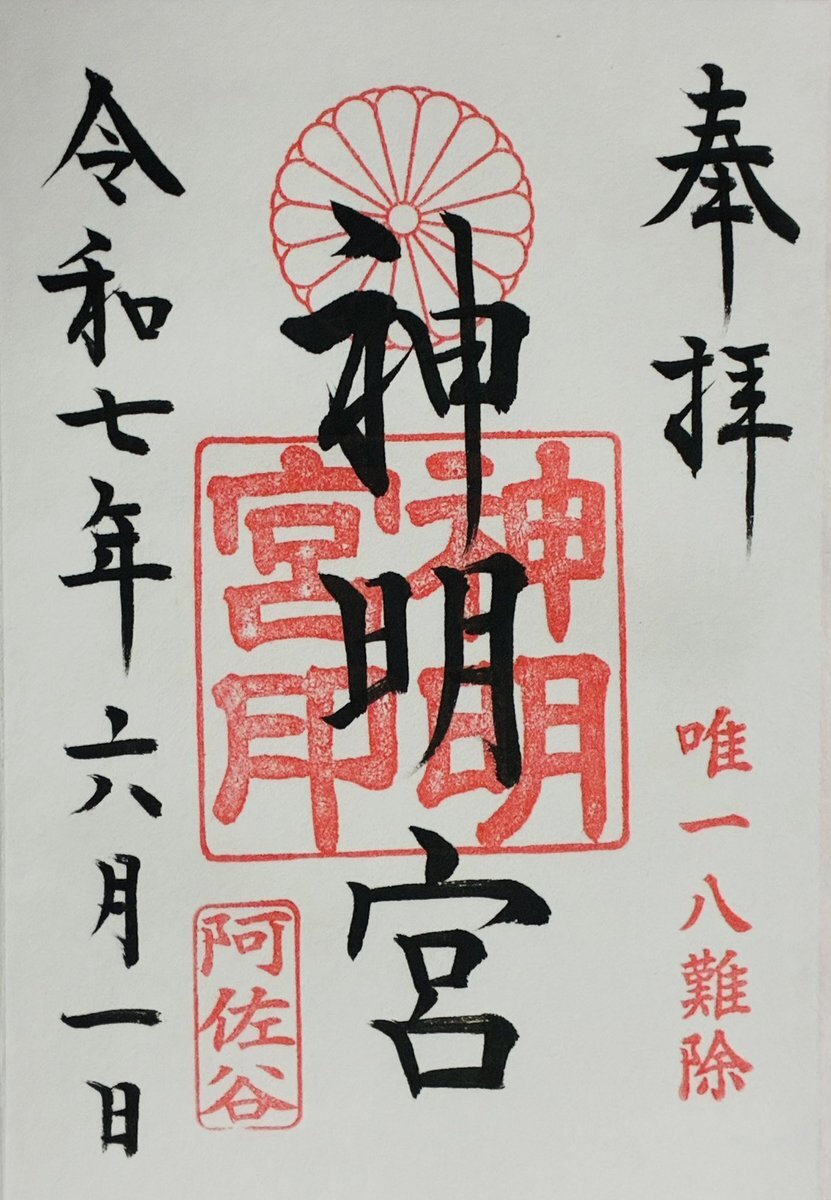 奉拝
唯一八難除
神明宮
神明宮印
阿佐谷
令和七年六月一日